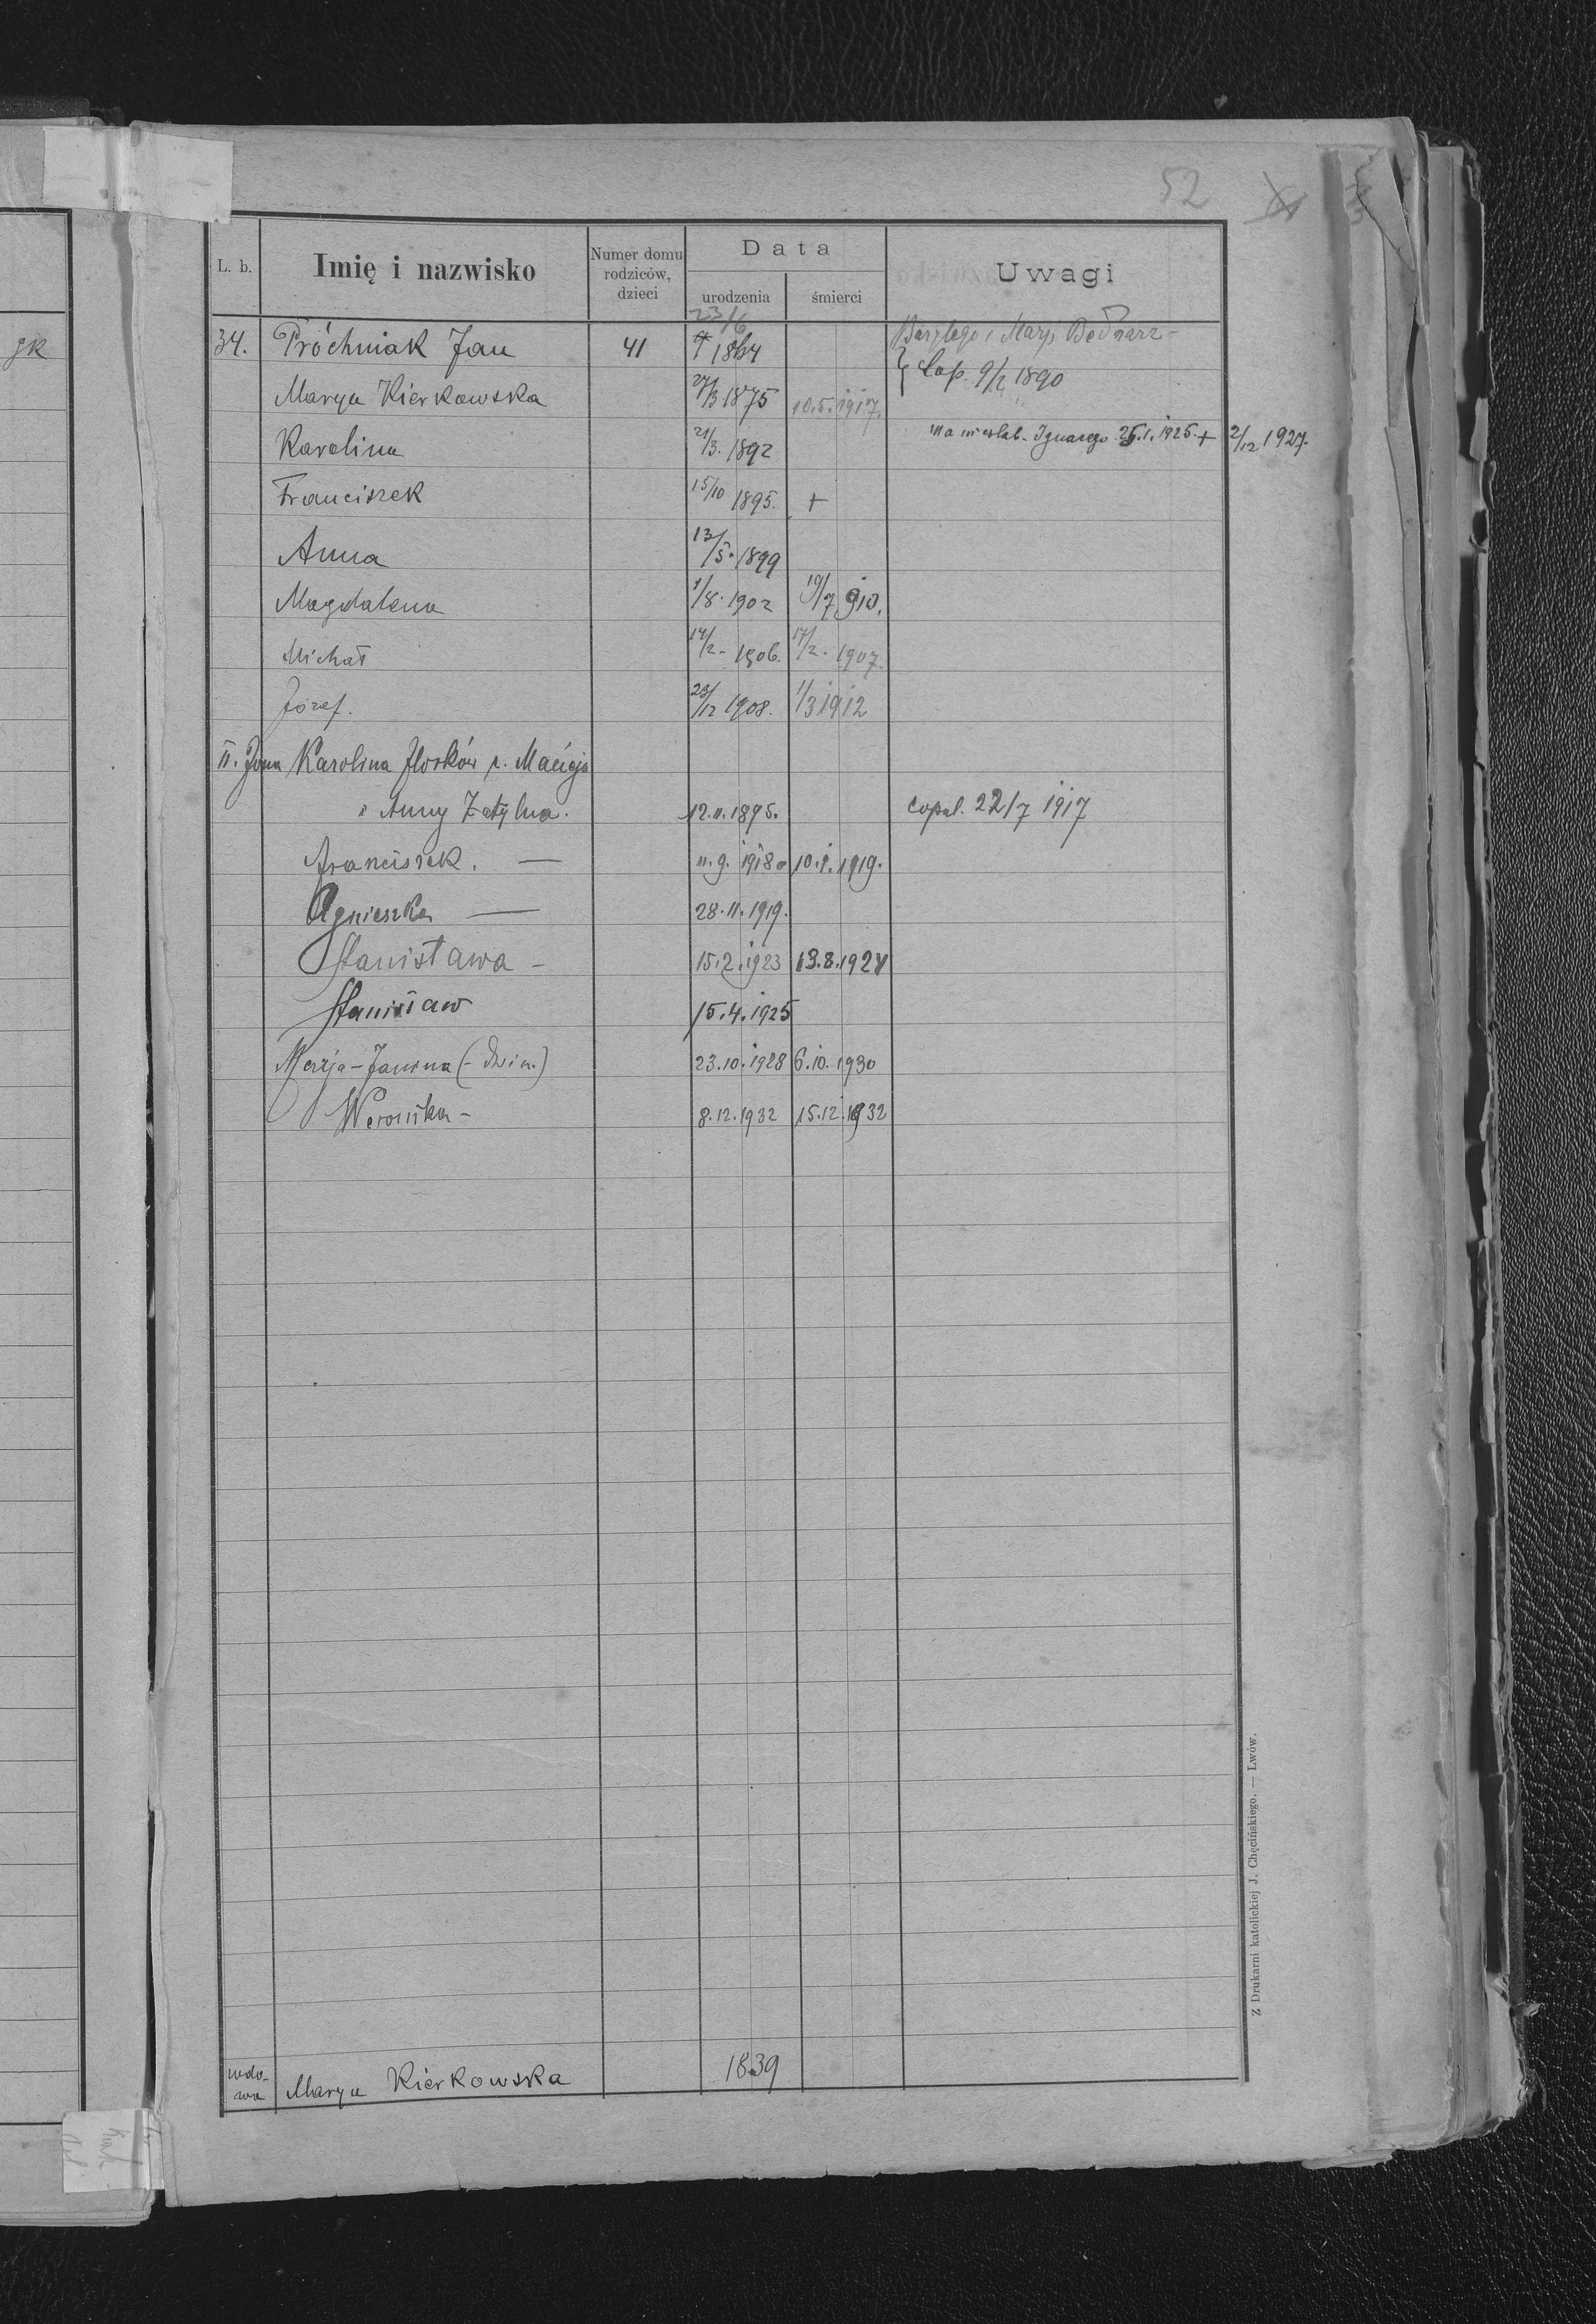 52
L. b. Imię i nazwisko Numer domu rodziców, dzieci Data urodzenia śmierci Uwagi
gk
23/6
34. Próchniak Jan 41 1864 Marji Bednarz -
Marya Kierkowska 27/3 1875 10.5.1917. Cop. 9/2 1890
Karolina 21/3. 1892 ma nieślub. Ignacego 25.1.1925. + 2/12 1927.
Franciszek 15/10 1895. +
Anna 13/5. 1899
Magdalena 1/8. 1902 19/7 910.
Michał 14/2 - 1906. 17/2. 1907.
Józef. 23/12 1908. 1/3 1912
II. Żona Karolina c. Macieja
i Anny 12.11.1895. copul. 22/7 1917
Franciszek. — 11.9.1918 10.1.1919.
Agnieszka — 28.11.1919.
Stanisława - 15.2.1923 13.8.1924
Stanisław 15.4.1925
Marja-Janina 23.10.1928 6.10.1930
Weronika - 8.12.1932 15.12.1932
wdo-
wa Marya Kierkowska 1839
Z Drukarni katolickiej J. Chęcińskiego. — Lwów.